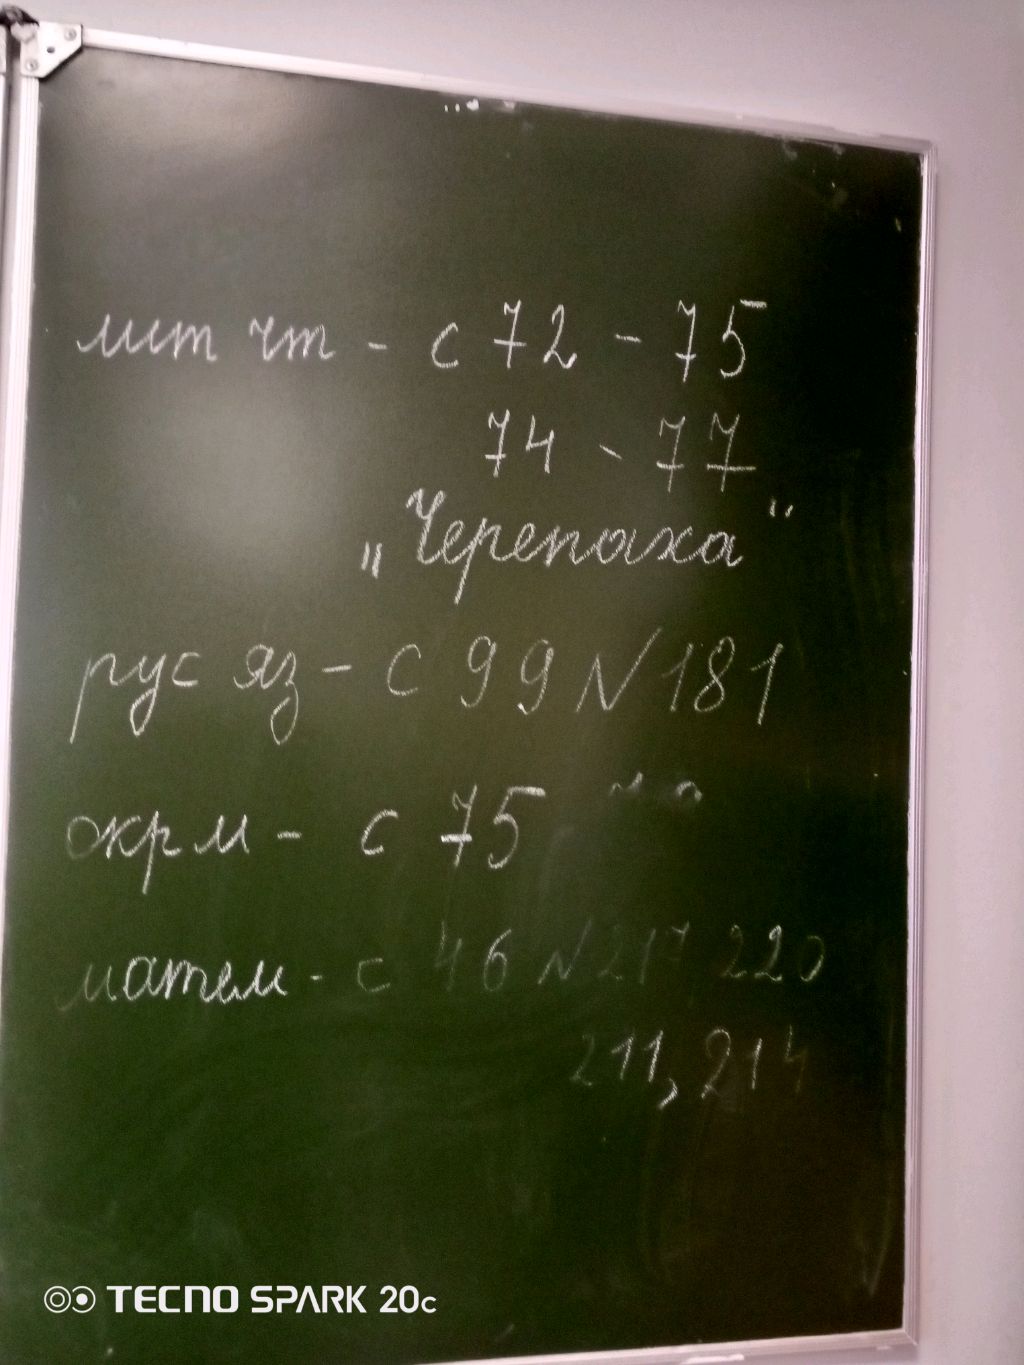 лит чт - с 72 - 75
74 - 77
„Черепаха"
рус яз - с 99 N 181
окр м - с 75
матем - с 46 N 217 220
211, 214
TECNO SPARK 20c